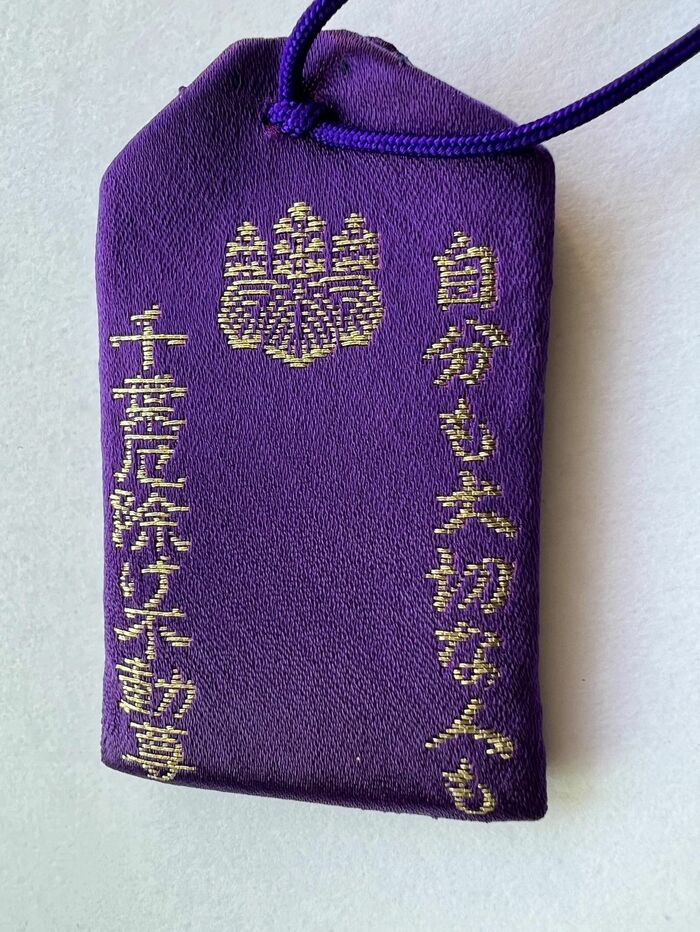 自分も大切な人も
千葉厄除け不動尊